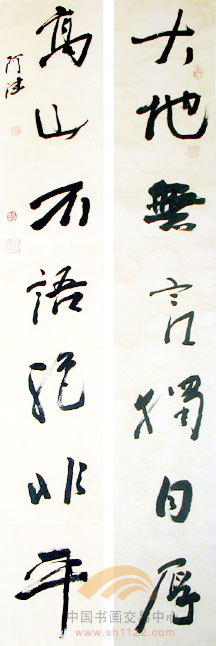 大地無言獨自厚
高山不語絕非平
中国书画交易中心
www.sh1122.com